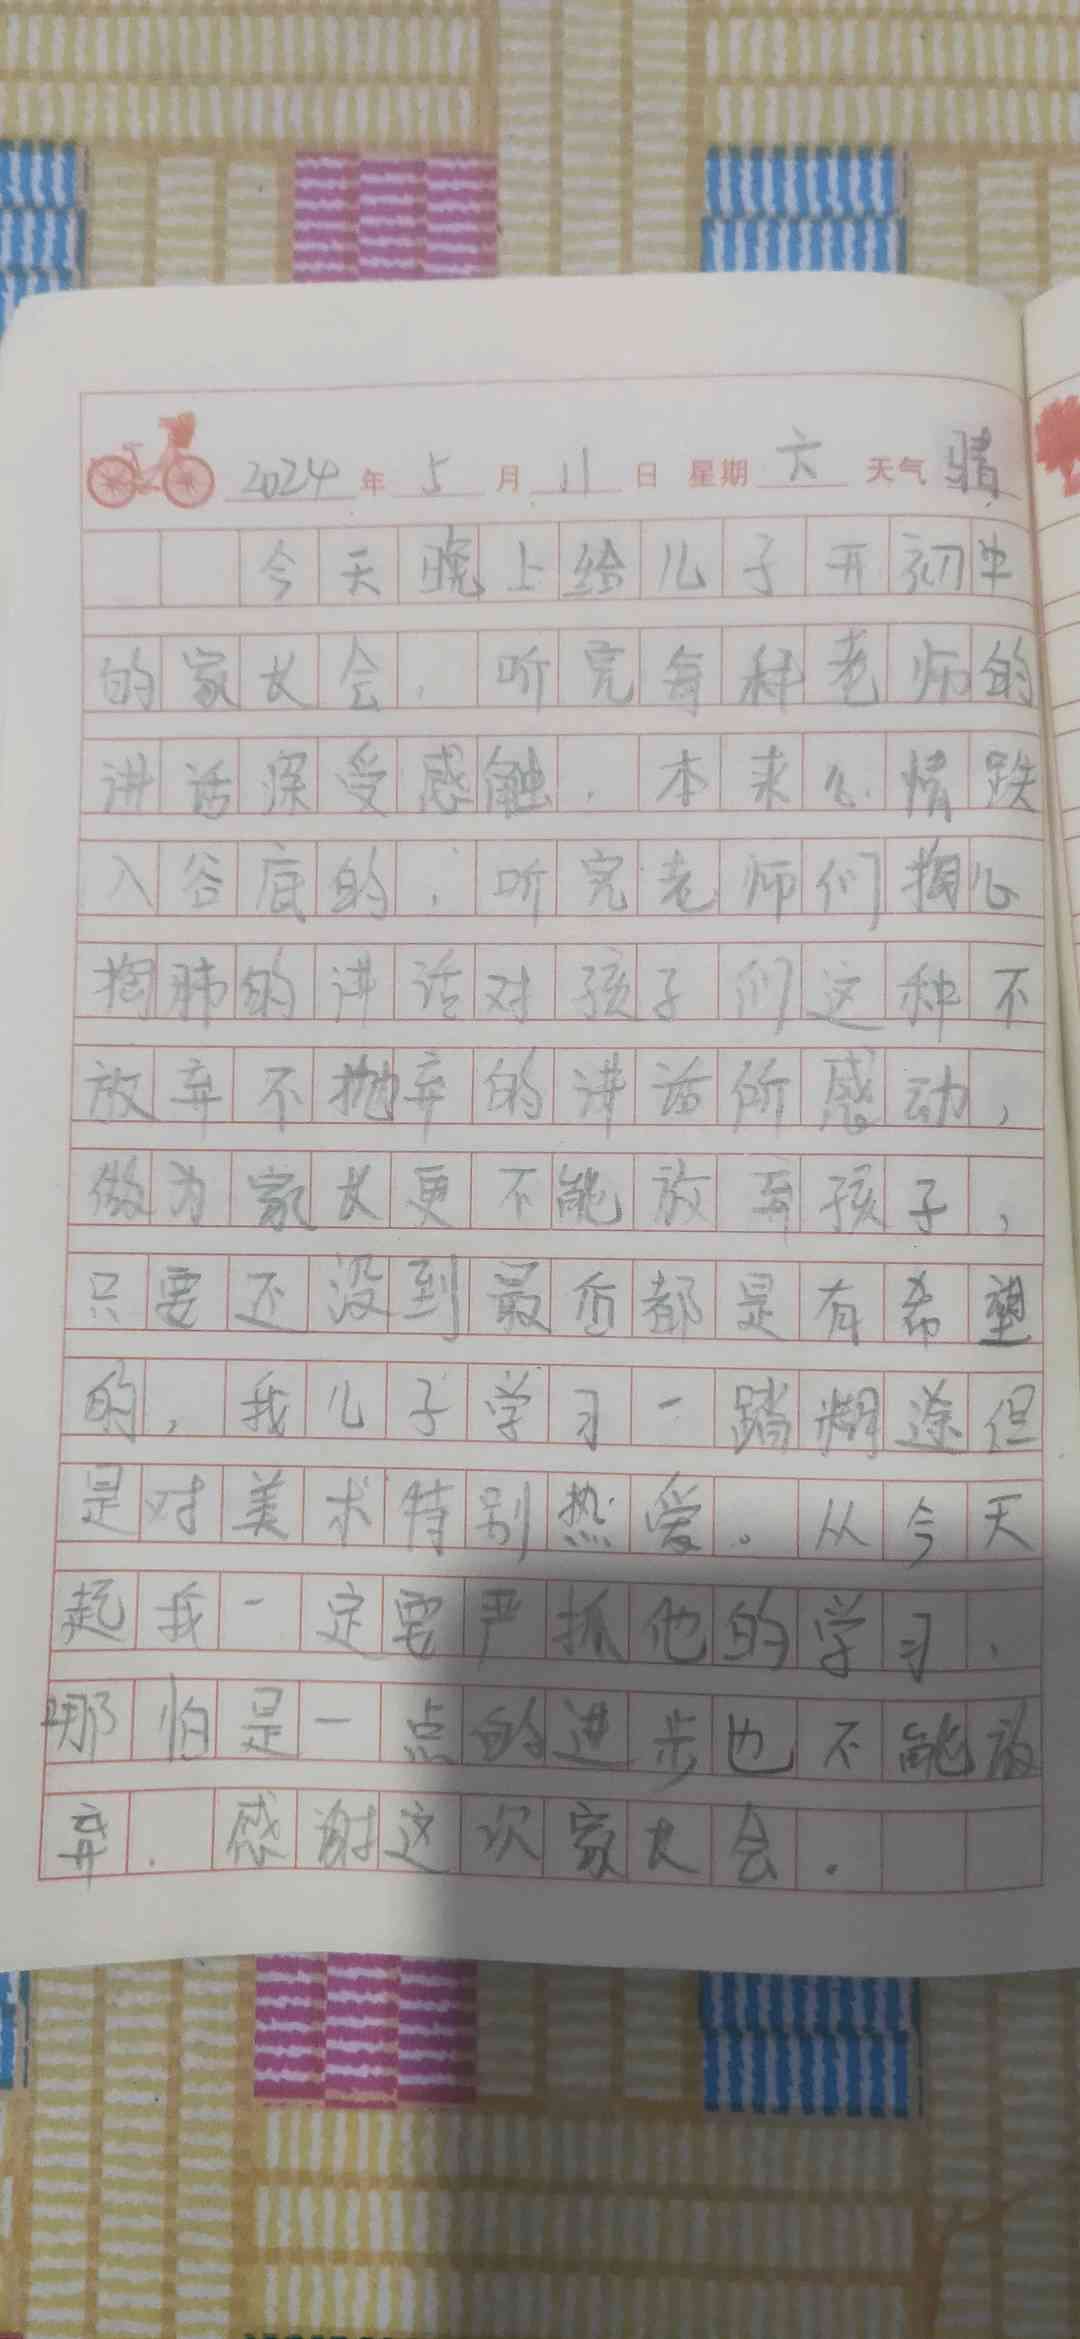 2024年5月11日 星期六 天气晴
今天晚上给儿子开初中
的家长会.听完每科老师的
讲话深受感触.本来心情跌
入谷底的,听完老师们掏心
掏肺的讲话对孩子们这种不
放弃不抛弃的讲话所感动,
做为家长更不能放弃孩子,
只要还没到最后都是有希望
的,我儿子学习一踏糊涂但
是对美术特别热爱。从今天
起我一定要严抓他的学习.
哪怕是一点的进步也不能放
弃.感谢这次家长会.